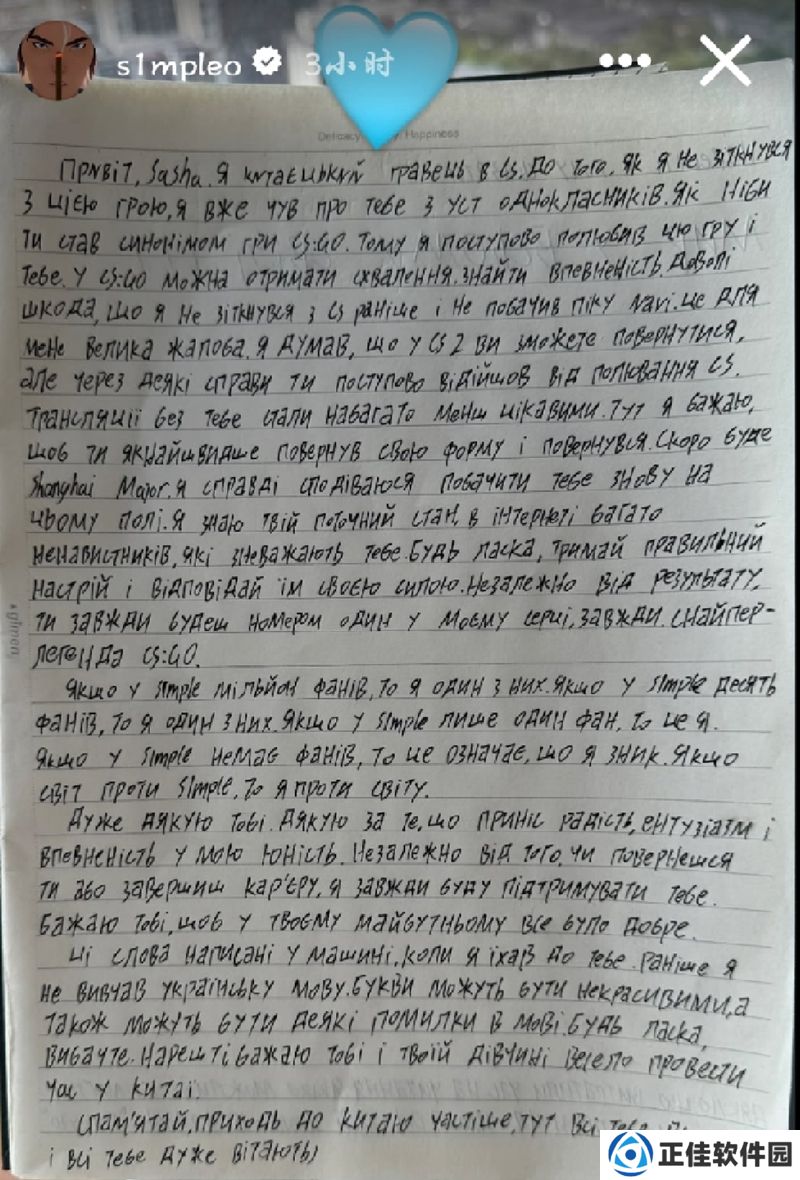 s1mpleo 3小时
Happiness
Привіт, Sasha. Я китаєцький гравець в CS. До того, як я не зіткнувся
з цією грою, я вже чув про тебе з уст однокласників. Як ніби
ти став синонімом гри CS:GO. Тому я поступово полюбив цю гру і
тебе. У CS:GO можна отримати схвалення. Знайти впевненість. Доволі
шкода, що я не зіткнувся з CS раніше і не побачив піку Navi. Це для
мене велика жалоба. Я думав, що у CS 2 ви зможете повернутися,
але через деякі справи ти поступово відійшов від полювання CS.
Трансляції без тебе стали набагато менш цікавими. Тут я бажаю,
щоб ти якнайшвидше повернув свою форму і повернувся. Скоро буде
Shanghai Major. Я справді сподіваюся побачити тебе знову на
цьому полі. Я знаю твій поточний стан, в інтернеті багато
ненависників, які зневажають тебе. Будь ласка, тримай правильний
настрій і відповідай їм своєю силою. Незалежно від результату,
ти завжди будеш номером один у моєму серці, завжди. Снайпер-
легенда CS:GO.
Якщо у s1mple мільйон фанів, то я один з них. Якщо у s1mple десять
фанів, то я один з них. Якщо у s1mple лише один фан, то це я.
Якщо у s1mple немає фанів, то це означає, що я зник. Якщо
світ проти s1mple, то я проти світу.
Дуже дякую тобі. Дякую за те, що приніс радість, ентузіазм і
впевненість у мою юність. Незалежно від того, чи повернешся
ти або завершиш кар'єру, я завжди буду підтримувати тебе.
Бажаю тобі, щоб у твоєму майбутньому все було добре.
Ці слова написані у машині, коли я їхав до тебе. Раніше я
не вивчав українську мову. Букви можуть бути некрасивими, а
також можуть бути деякі помилки в мові. Будь ласка,
вибачте. Нарешті бажаю тобі і твоїй дівчині весело провести
час у Китаї.
Спам'ятай, приходь до Китаю частіше, тут всі тебе
і всі тебе дуже вітають)
正佳软件园